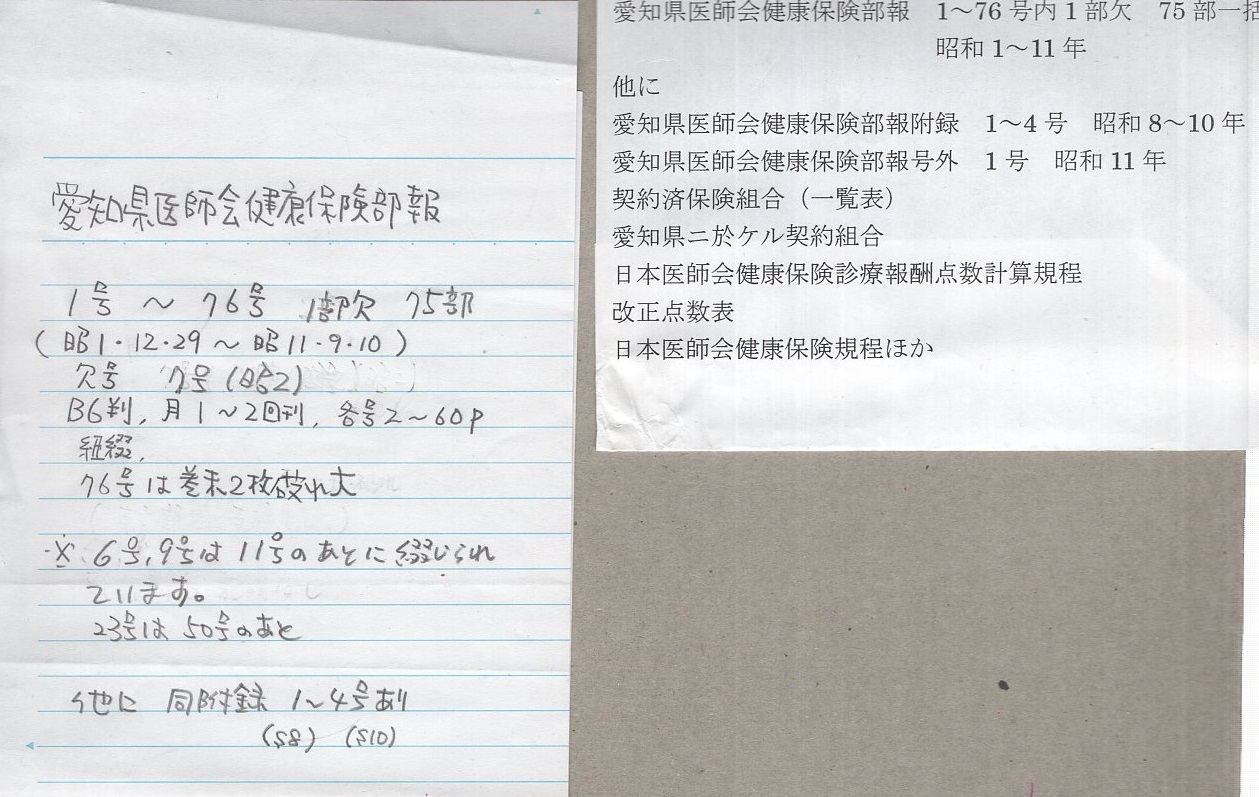 愛知県医師会健康保険部報
1号 ～ 76号 1部欠 75部
(昭1・12・29～昭11・9・10)
欠号 7号(昭2)
B6判, 月1～2回刊, 各号2～60P
紐綴,
76号は巻末2枚破れ大
※ 6号, 9号は11号のあとに綴じられ
ています。
23号は50号のあと
他に 同附録 1～4号あり
(S8) (S10)
愛知県医師会健康保険部報 1～76号内1部欠 75部一括
昭和1～11年
他に
愛知県医師会健康保険部報附録 1～4号 昭和8～10年
愛知県医師会健康保険部報号外 1号 昭和11年
契約済保険組合（一覧表）
愛知県ニ於ケル契約組合
日本医師会健康保険診療報酬点数計算規程
改正点数表
日本医師会健康保険規程ほか